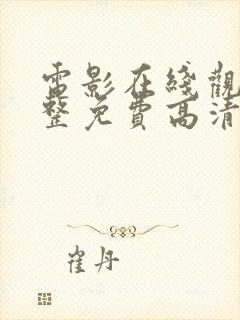 電影在綫觀
整免費高清
崔丹